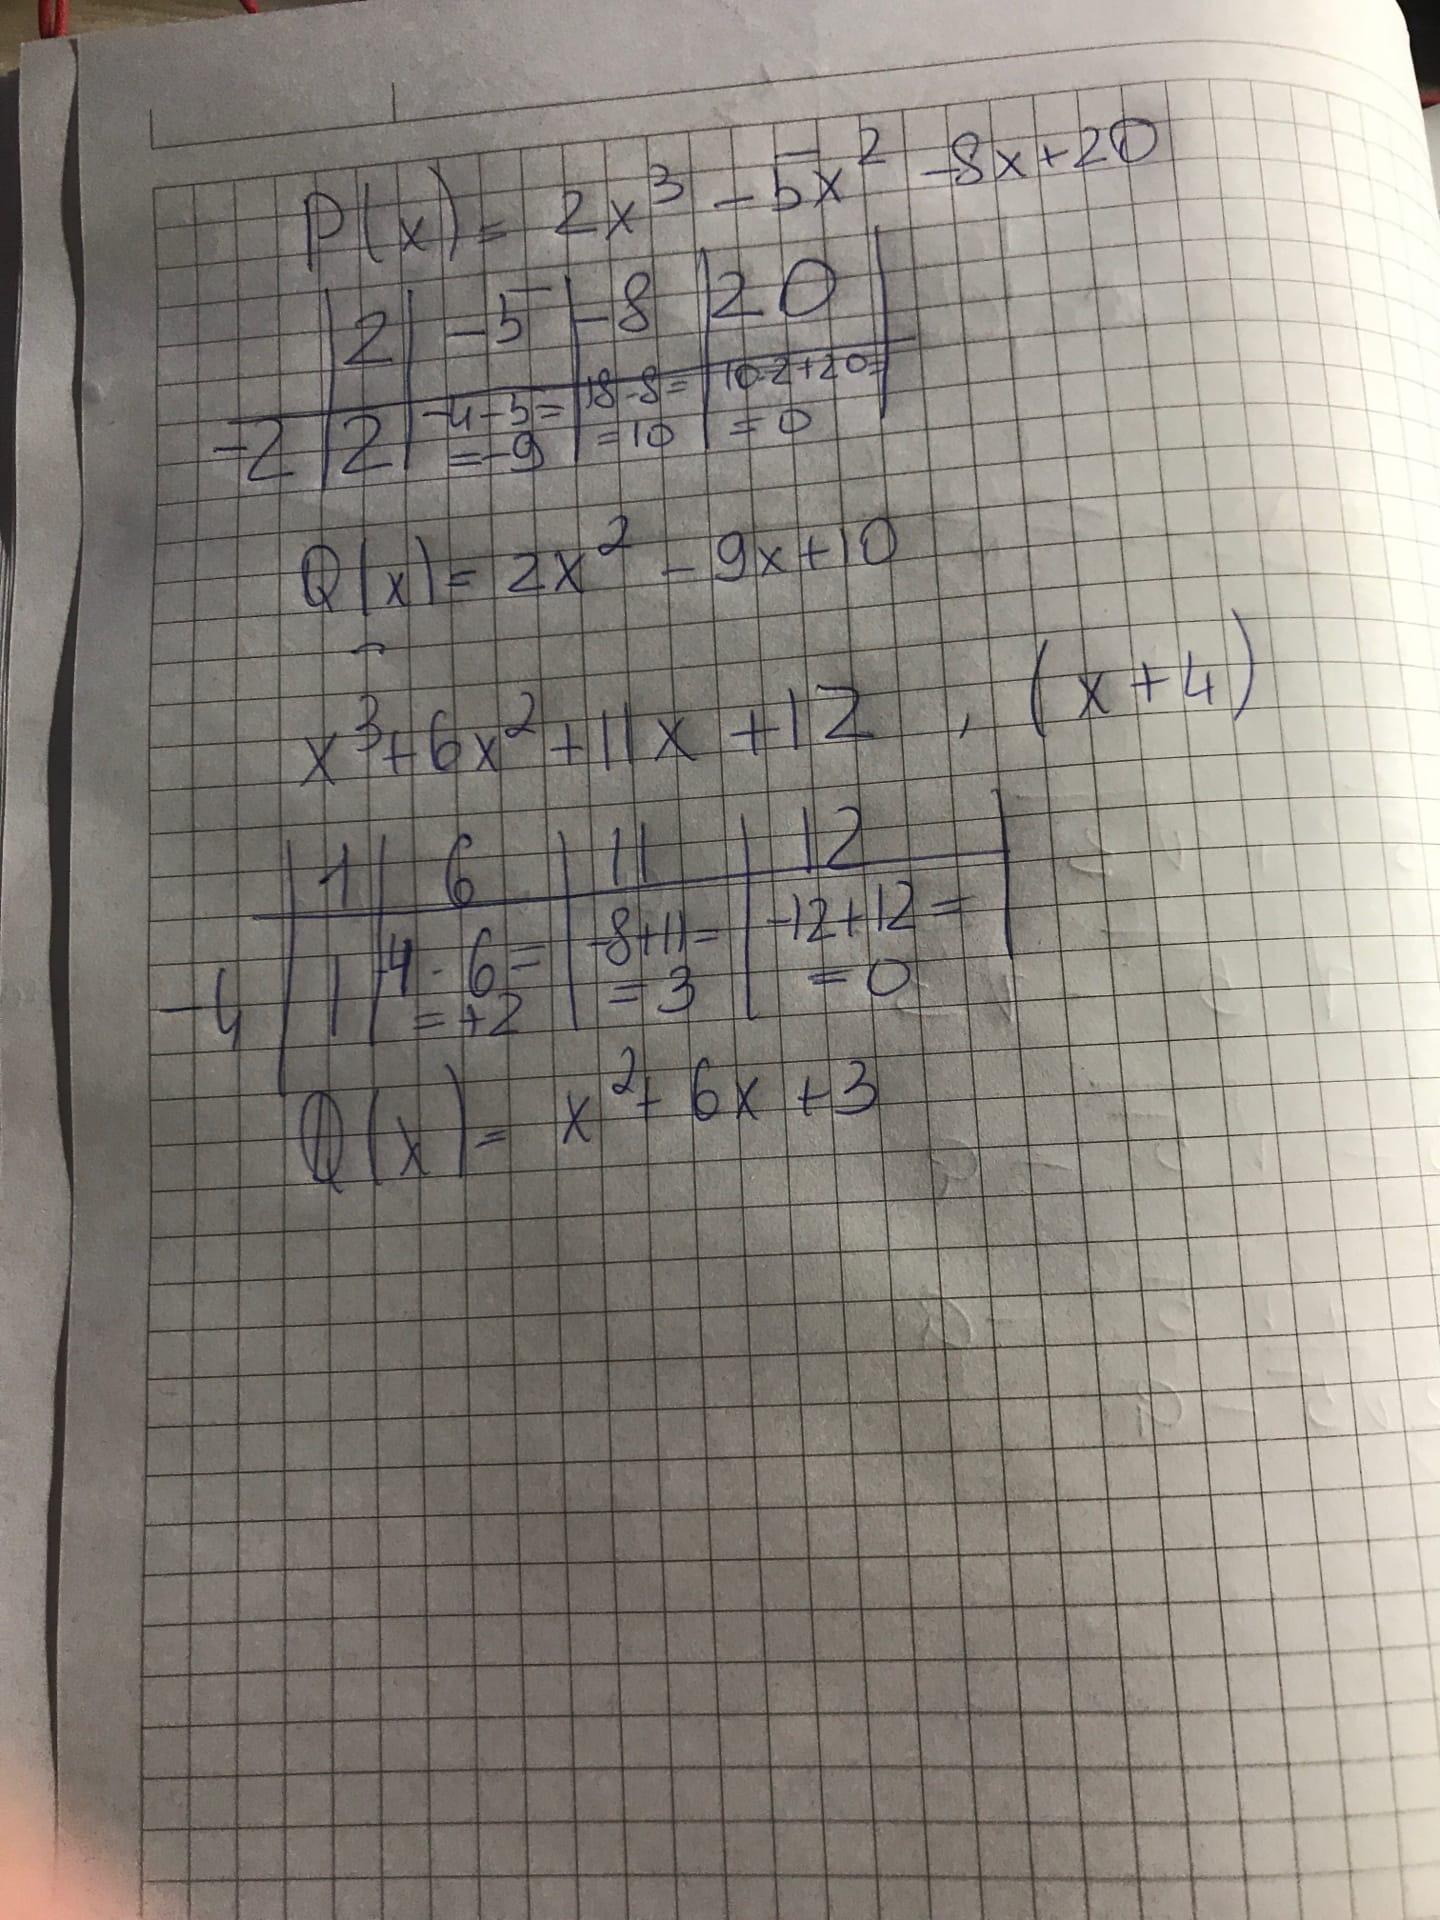 P(x) = 2x³ - 5x² - 8x + 20
| 2 | -5 | -8 | 20 |
-2 | 2 | -4-5= | 18-8= | 10·2+20=
=-9 | =10 | =0
Q(x) = 2x² - 9x + 10
x³+6x²+11x +12 , (x+4)
| 1 | 6 | 11 | 12 |
-4 | 1 | 4 - 6= | -8+11= | -12+12= |
=+2 | =3 | =0
Q(x) = x² + 6x + 3